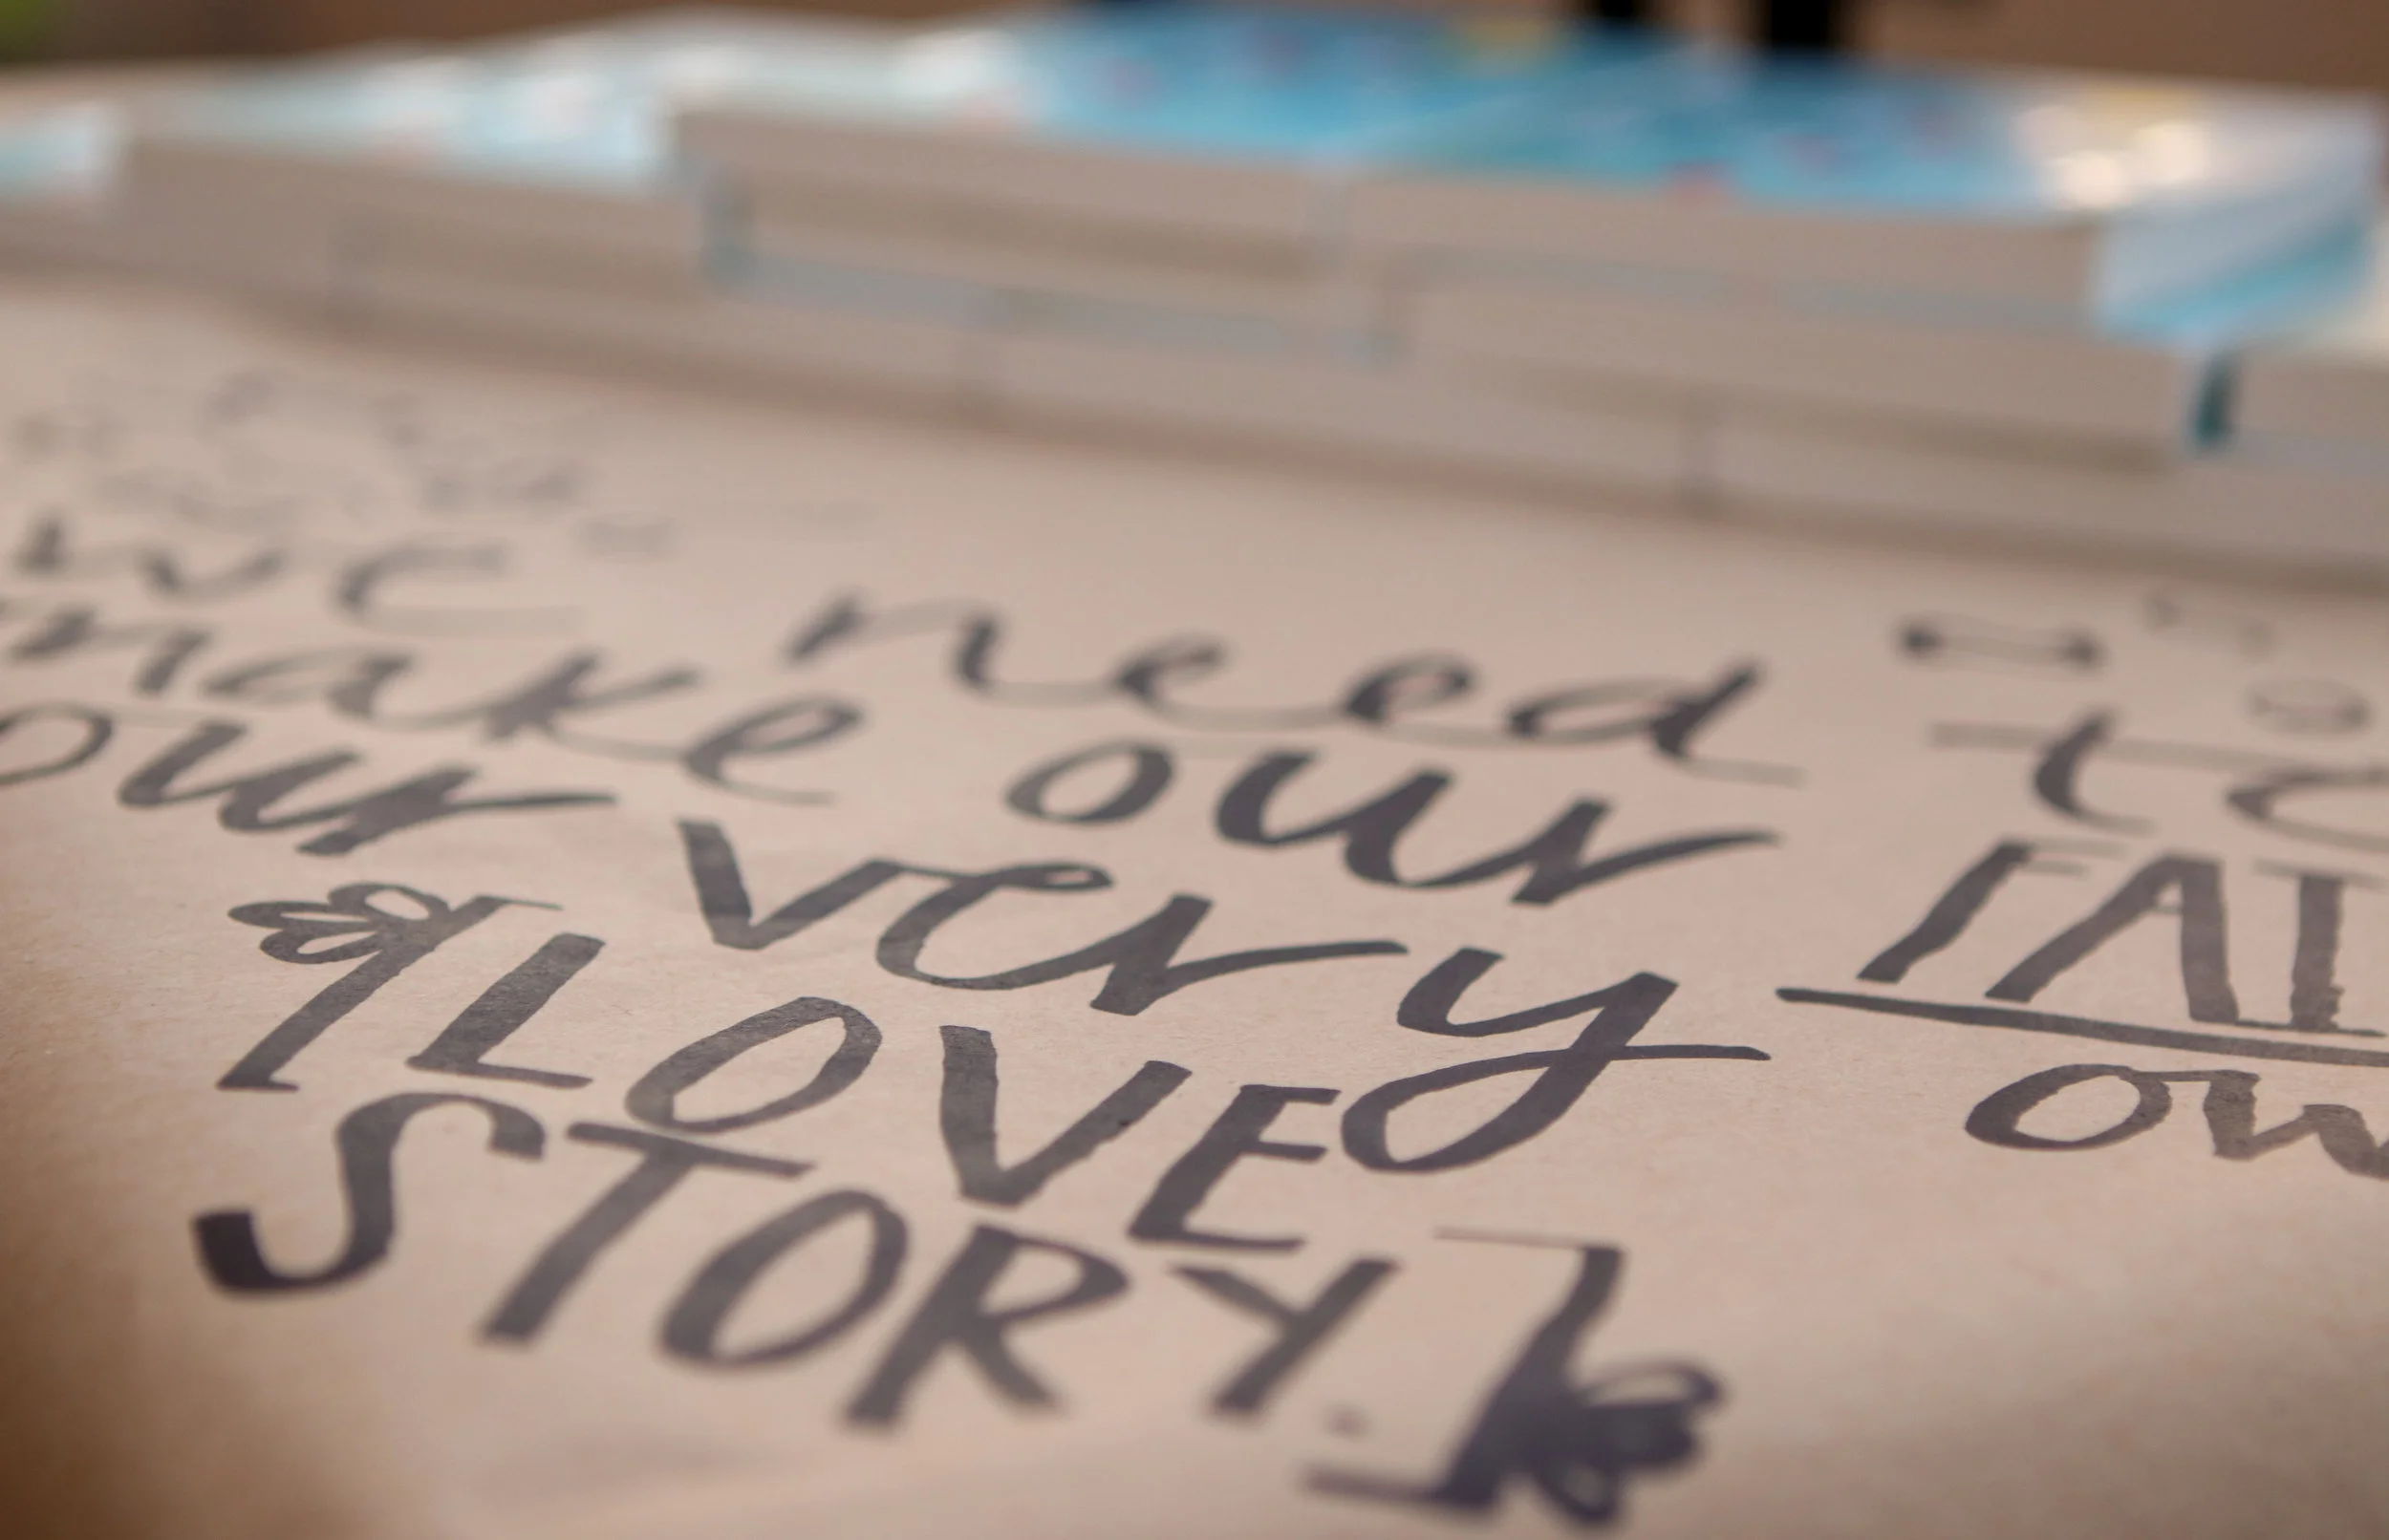 we need to
make our
our very own
LOVE
STORY.